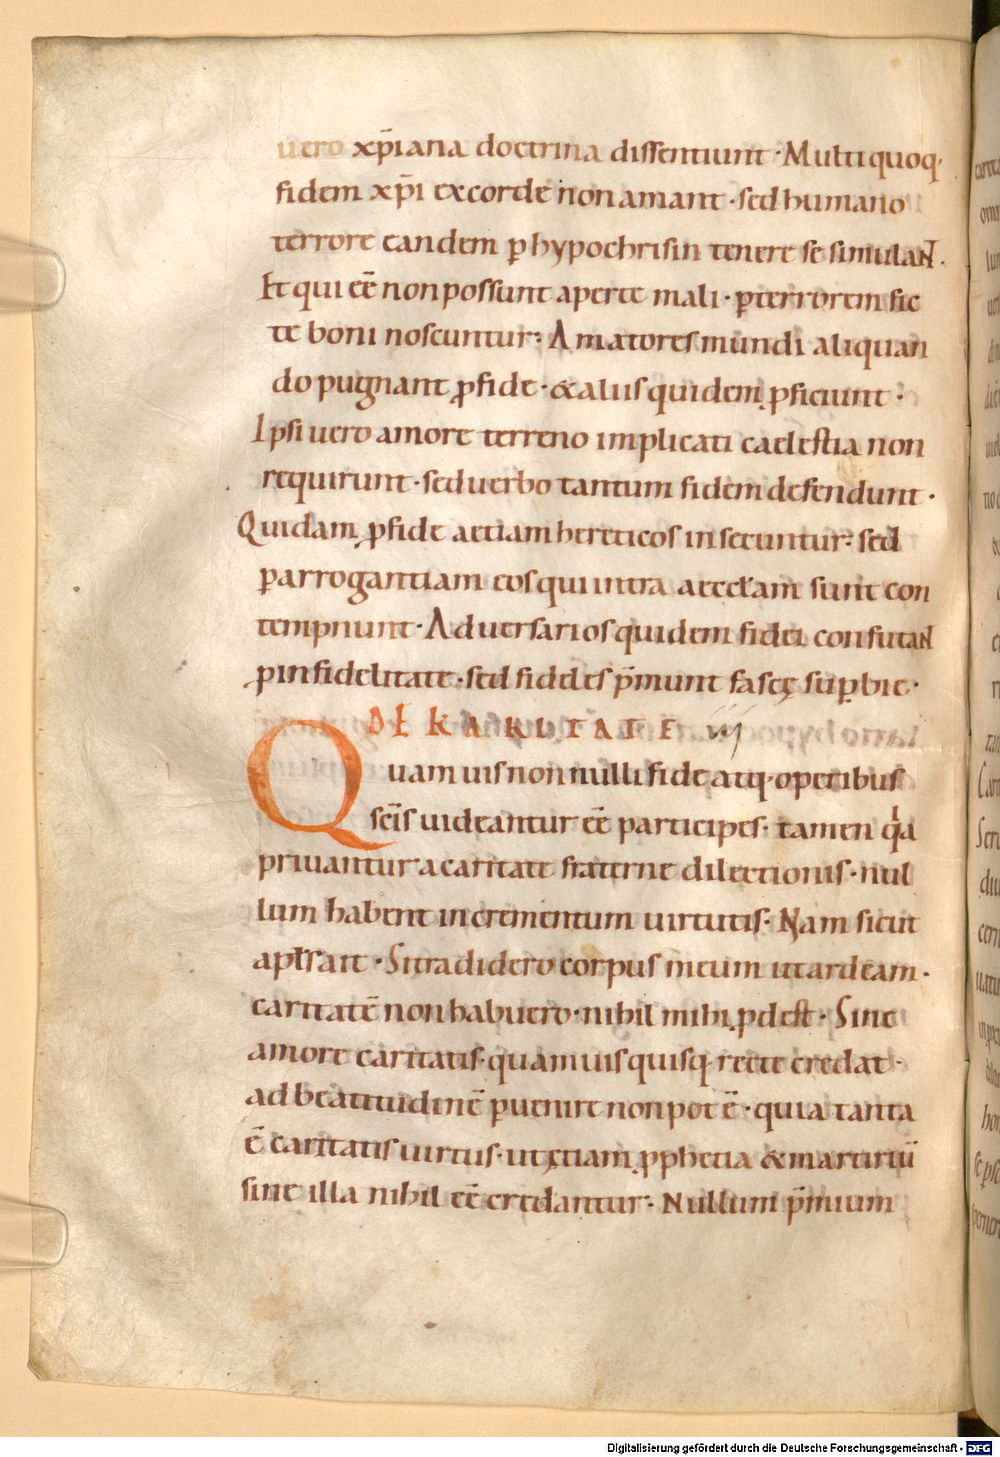 uero xp̄iana doctrina dissentiunt · Multi quoq·
fidem xp̄i ex corde non amant · sed humano
terrore eandem ꝑ hypochrisin tenere se simulaNT.
Et qui eē non possunt aperte mali · ꝑ terrorem fic
te boni noscuntur: Amatores mundi aliquan
do pugnant ꝓ fide · & aliis quidem ꝓficiunt ·
Ipsi uero amore terreno implicati caelestia non
requirunt · sed uerbo tantum fidem defendunt ·
Quidam ꝓ fide aetiam hereticos insecuntur: sed
ꝑ arrogantiam eos qui intra aeccłam sunt con
tempnunt · Aduersarios quidem fidei confutaNT
ꝓ infidelitate · sed fideles p̄munt fascę suꝑbie ·
DE KARITATE iij
Quam uis non nulli fide atq· operibus
sc̄is uideantur eē participes · tamen q̇a
priuantur a caritate fraterne dilectionis · nul
lum habent incrementum uirtutis · Nam sicut
apłs ait · Si tradidero corpus meum ut ardeam ·
caritatē non habuero · nihil mihi ꝓdest · Sine
amore caritatis · quamuis quisq· recte credat ·
ad beatitudinē ꝑuenire non potē · quia tanta
ē caritatis uirtus · ut ętiam ꝓphetia & martiriū
sine illa nihil eē credantur · Nullum p̄mium
Digitalisierung gefördert durch die Deutsche Forschungsgemeinschaft - DFG